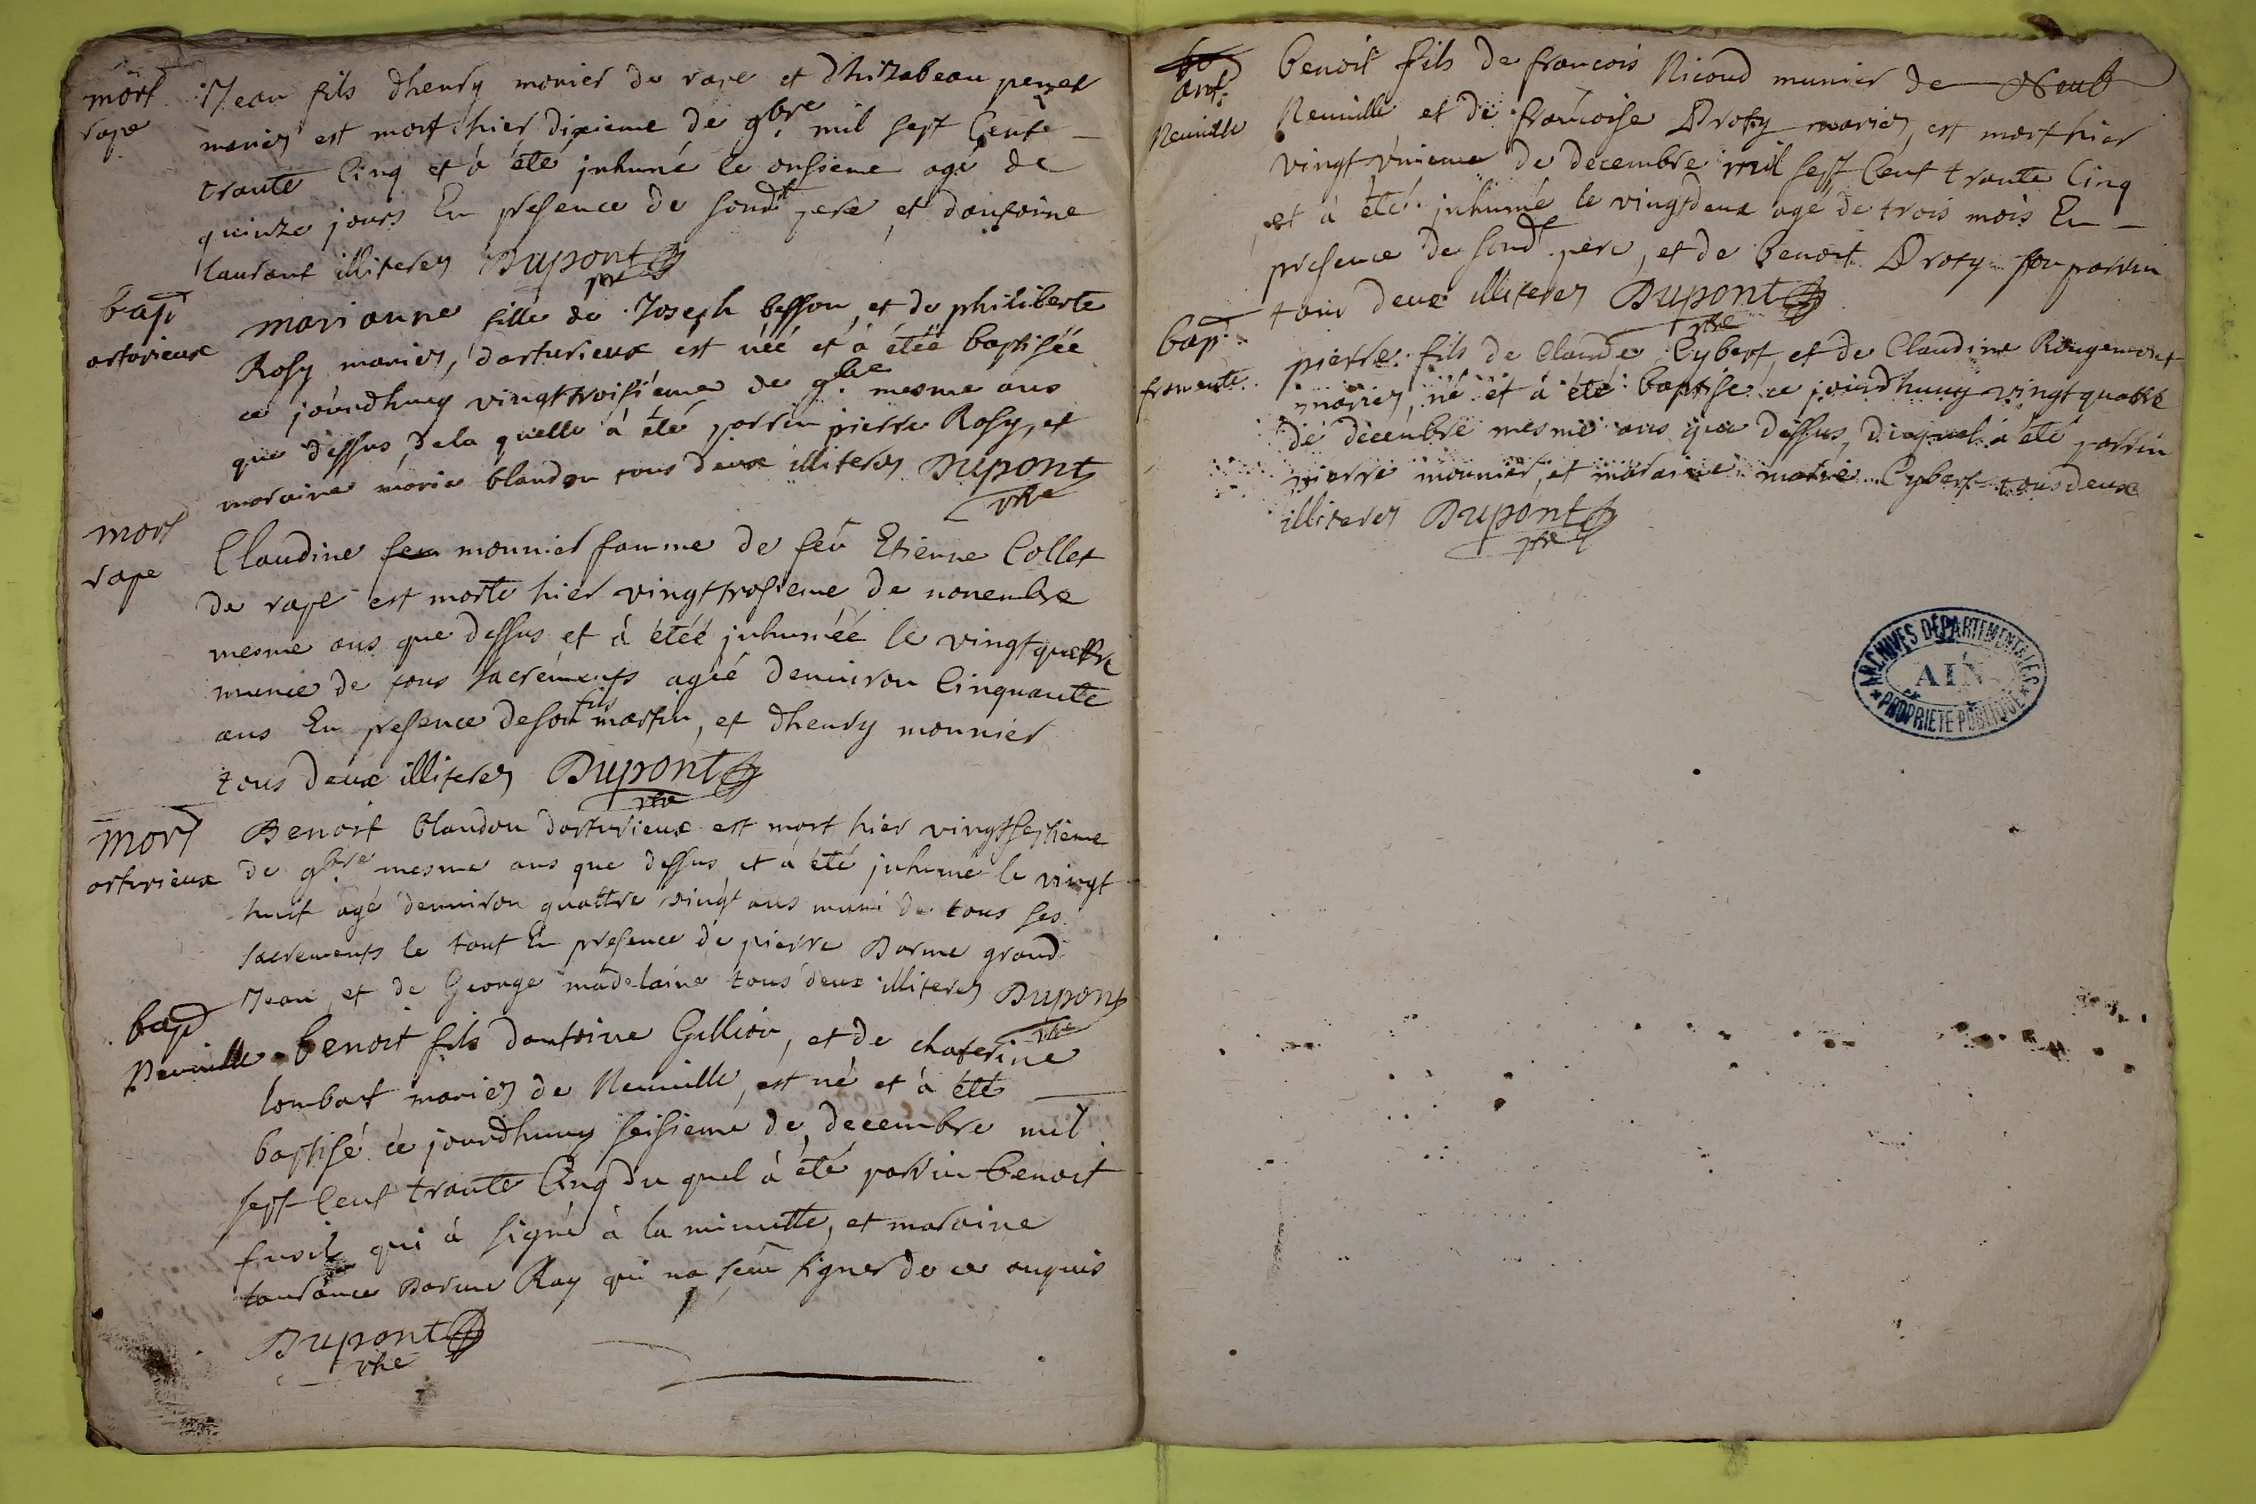 mort
rape
Jean fils dhenry monier de rape et dhizabeau perret
mariés est mort hier dixieme de 9bre mil sept Cent
trante Cinq et à été jnhumé le onsieme agé de
quinze jours En presence de sondt pere et dantoine
laurant illiterés Dupont
ptre
bapt
arturieux
marianne fille de Joseph besson, et de philiberte
Rosy mariés, darturieux est néé et à étéé baptiséé
ce jourdhuy vingttroisiéme de 9bre mesme ans
que dessus, dela quelle à été parrin pierre Rosy, et
maraine marie blandon tous deux illiterés Dupont
ptre
mort
rape
Claudine monnier famme de feu Etienne Collet
de rape est morte hier vingttrosieme de nouembre
mesme ans que dessus et à étéé jnhuméé le vingtquattre
munie de tous sacréments agéé denuiron Cinquante
ans En presence deson fils martin, et dhenry monnier
tous deux illiterés Dupont
ptre
mort
arturieux
Benoit blandon darturieux est mort hier vingtseptieme
de 9bre mesme ans que dessus et à été jnhumé le vingt
huit agé denuiron quattre vingt ans muni de tous ses
sacrements le tout En presence de pierre Darme grand
Jean, et de George madelaine tous deux illiterés Dupont
ptre
bapt
Neuuille
benoit fils dantoine Gillion, et de chaterine
lombart mariés de Neuuille, est né et à été
baptisé ce jourdhuy seisieme de decembre mil
sept Cent trante Cinq du quel à été parrin benoit
fusil qui à signé à la minutte, et maraine
laurance Darme Ray qui na seu signer de ce enquis
Dupont
ptre
ent.
Neuuille
benoit fils de francois Nicoud munier de Neub
Neuuille et de francoise Droty mariés, est mort hier
vingt vnieme de decembre mil sept Cent trante Cinq
et à été jnhumé le vingtdeux agé de trois mois En
presence de sondt pere, et de benoit Droty son parrin
tous deux illiterés Dupont
ptre
bapt
fromente
pierre fils de Claude Cybert et de Claudine Rougemont
mariés, né et à été baptisé ce jourdhuy vingt quattre
de decenbre mesme ans que dessus, duquel à été parrin
pierre mounier, et maraine marie Cybert tous deux
illiterés Dupont
ptre
ARCHIVES DÉPARTEMENTALES
AIN
PROPRIETE PUBLIQUE